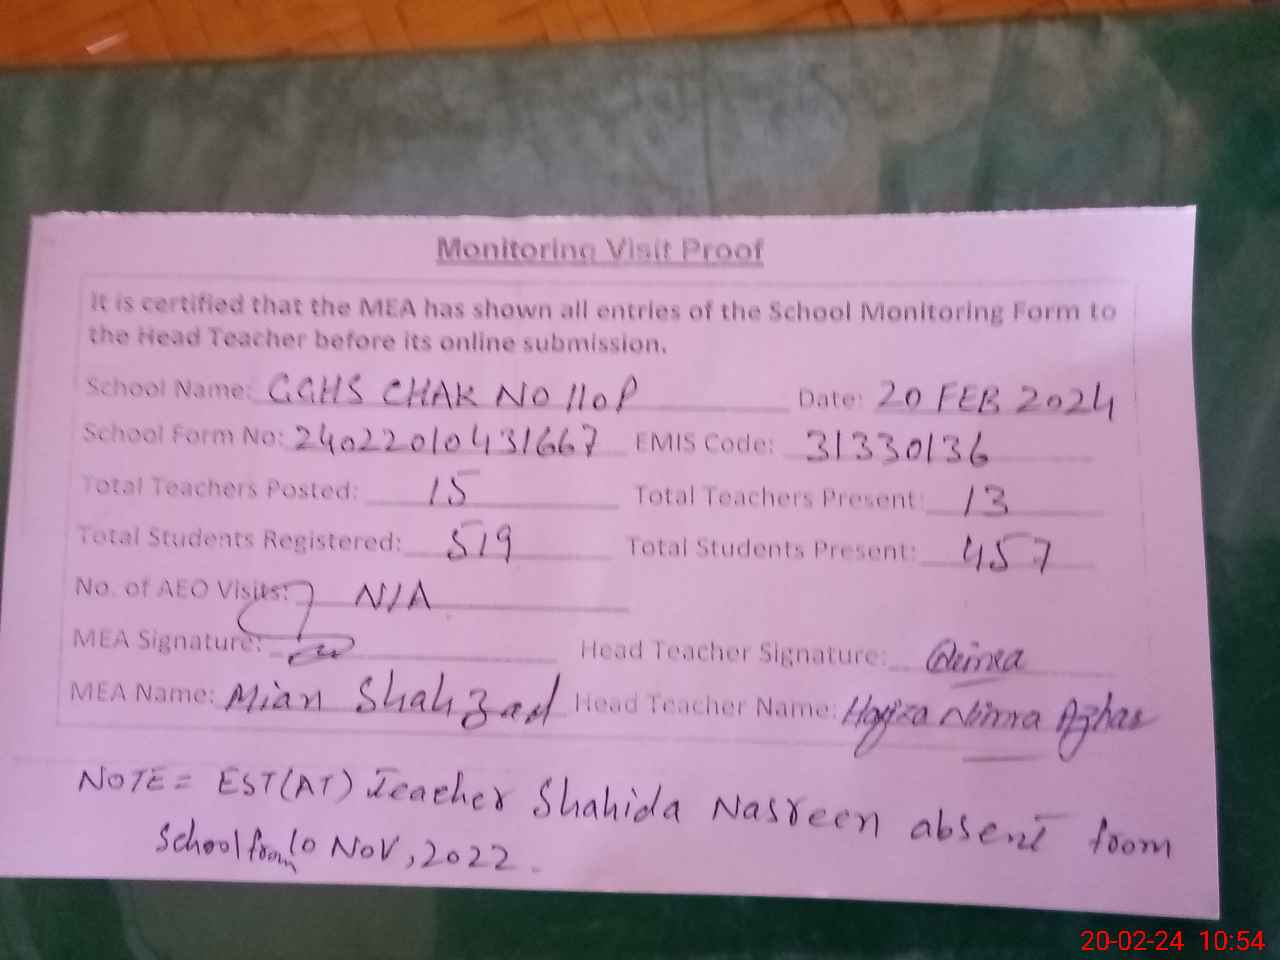 Monitoring Visit Proof
It is certified that the MEA has shown all entries of the School Monitoring Form to
the Head Teacher before its online submission.
School Name: GGHS CHAK NO 110P Date: 20 FEB 2024
School Form No: 24022010431667 EMIS Code: 31330136
Total Teachers Posted: 15 Total Teachers Present: 13
Total Students Registered: 519 Total Students Present: 457
No. of AEO Visits: N/A
MEA Signature: Head Teacher Signature:
MEA Name: Mian Shahzad Head Teacher Name: Hafiza Nimra Azhar
NOTE= EST(AT) Teacher Shahida Nasreen absent from
School from 10 NOV, 2022.
20-02-24 10:54